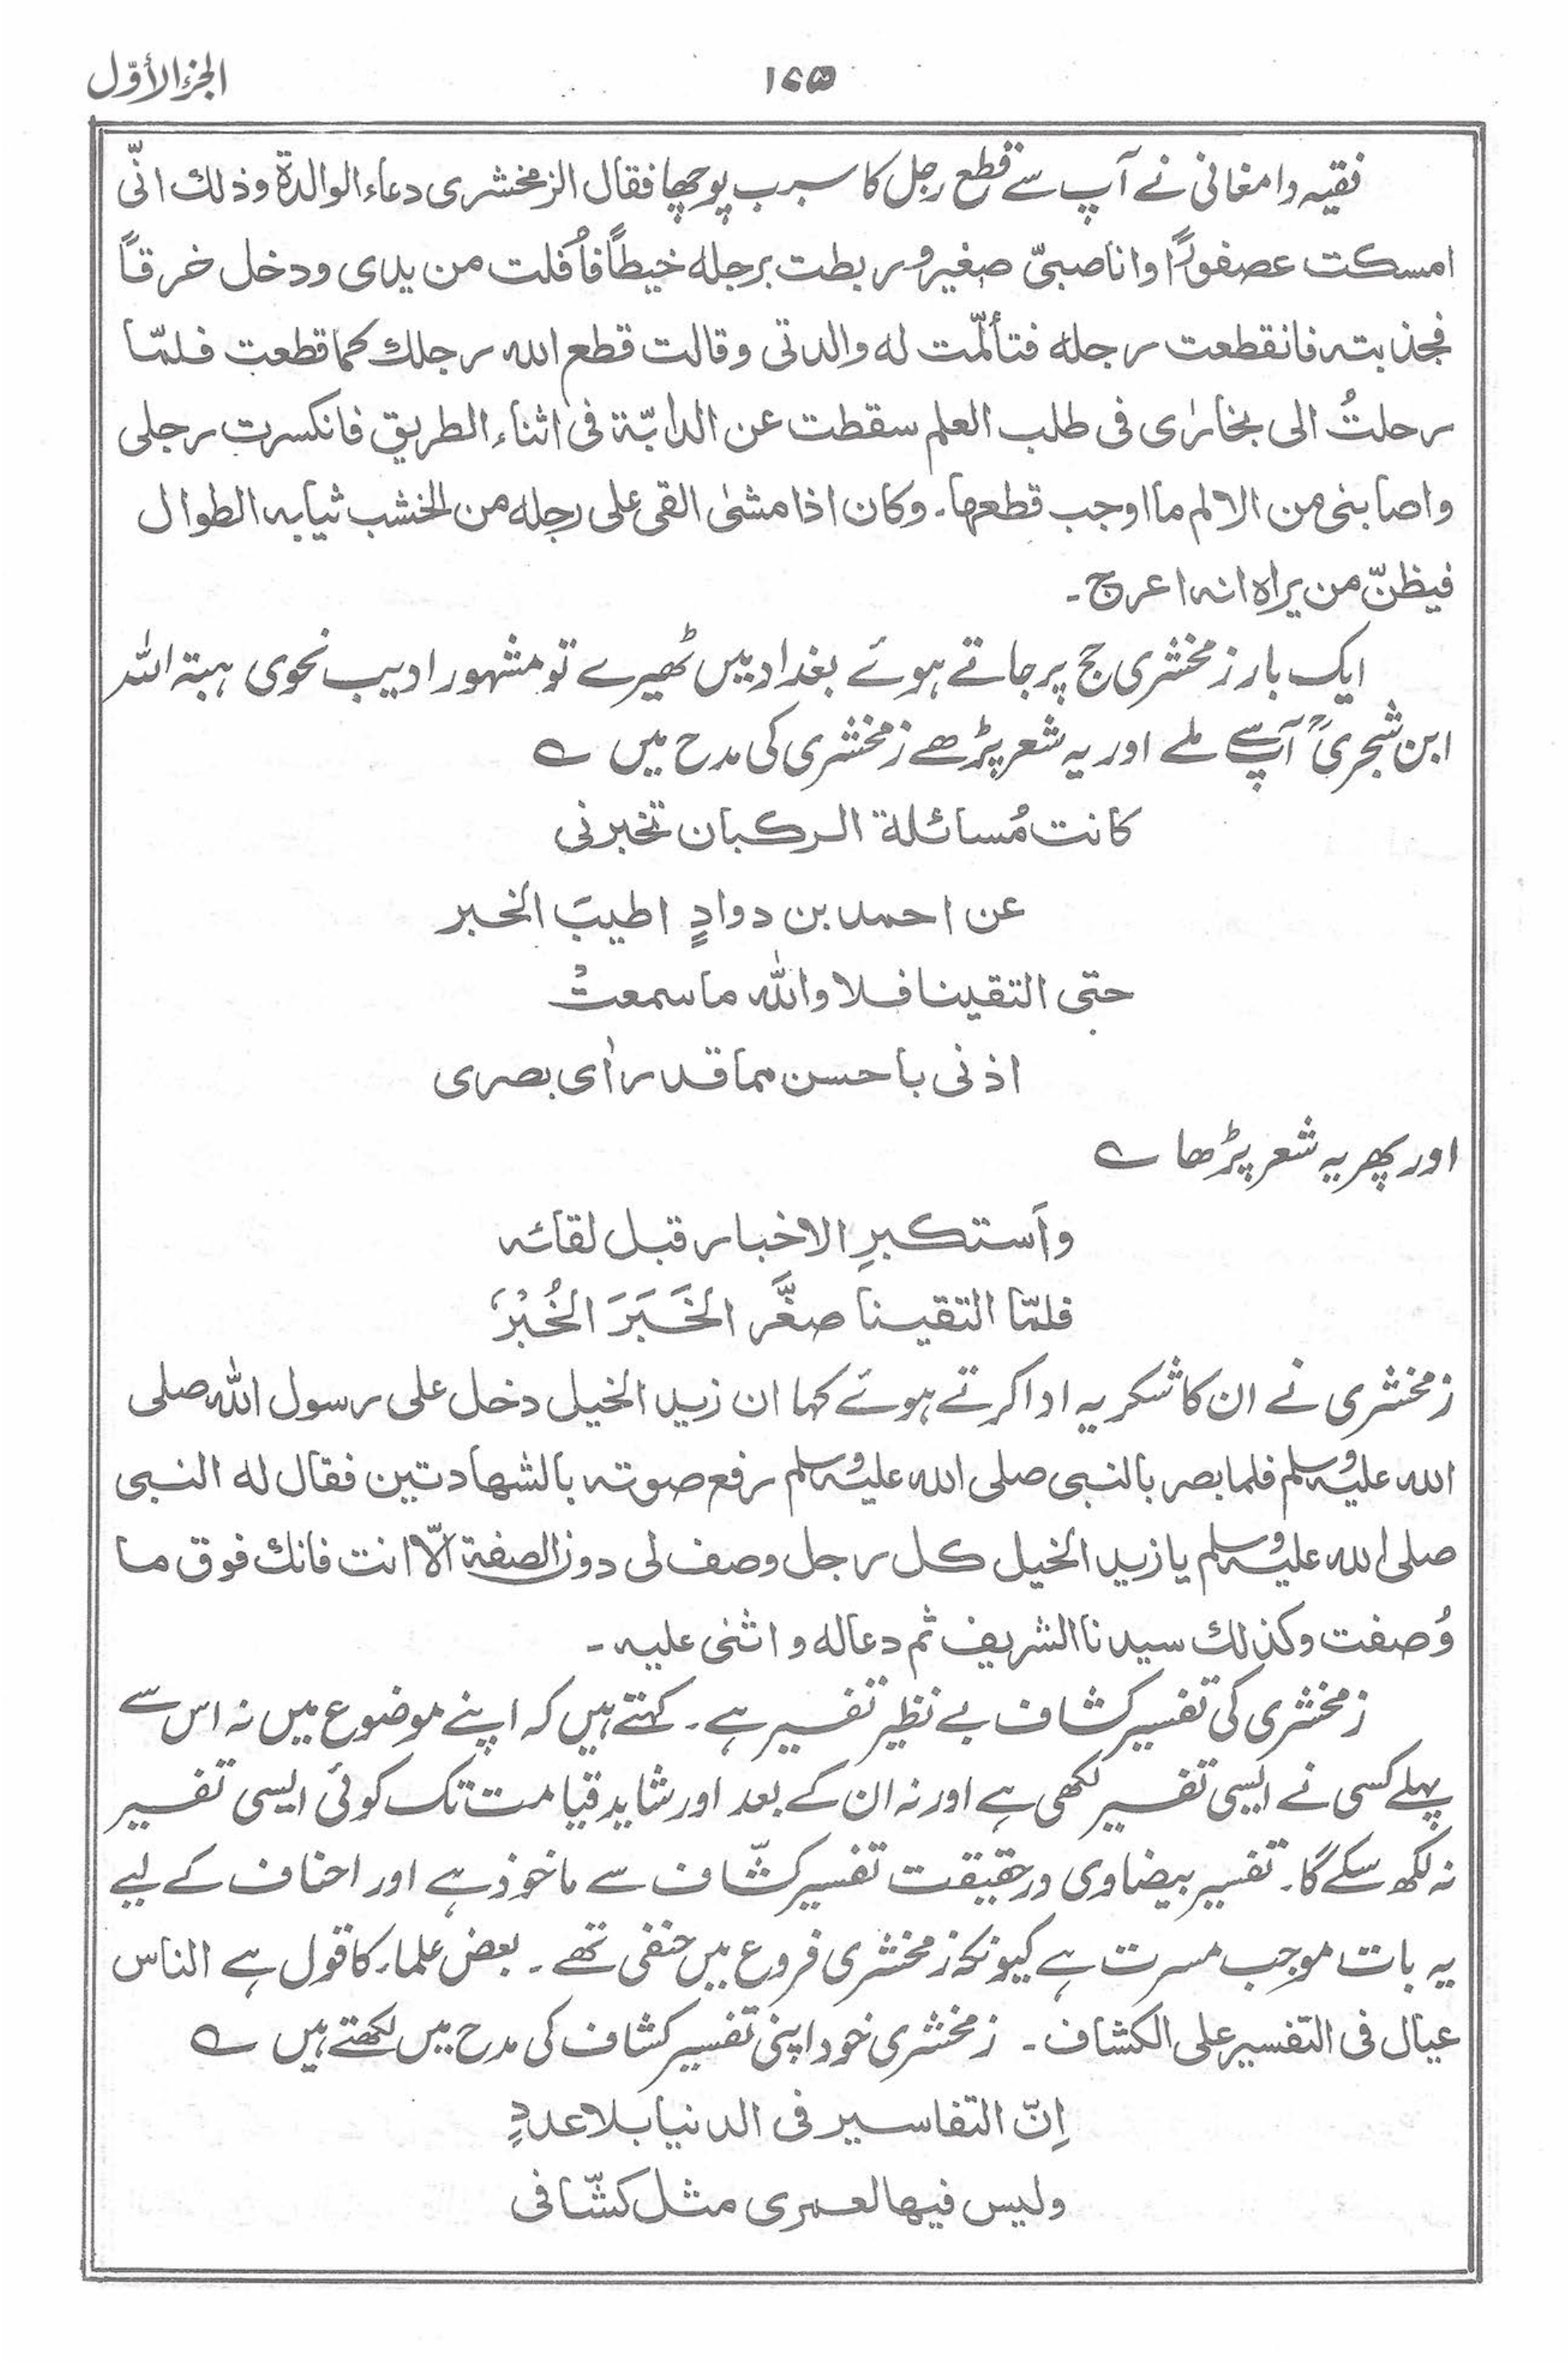 الجزء الأوّل
١٧٥
فقیہ دامغانی نے آپ سے قطع رجل کا سبب پوچھا فقال الزمخشری دعاء الوالدة وذلك انّی
امسكت عصفورًا وانا صبیّ صغیر وربطت برجله خیطاً فأفلت من یدی ودخل خرقاً
فجذبته فانقطعت رجله فتألّمت له والدتی وقالت قطع الله رجلك کما قطعت فلمّا
رحلتُ الی بخارٰی فی طلب العلم سقطت عن الدابّة فی اثناء الطریق فانکسرت رجلی
واصابنی من الالم ما اوجب قطعها۔ وکان اذا مشیٰ القی علی رجله من الخشب ثیابه الطوال
فیظنّ من یراہ انه اعرج۔
ایک بار زمخشری حج پر جاتے ہوئے بغداد میں ٹھیرے تو مشہور ادیب نحوی ہبۃ اللہ
ابن شجریؒ آپ سے ملے اور یہ شعر پڑھے زمخشری کی مدح میں ؎
کانت مُسائلة الرکبان تخبرنی
عن احمد بن دوادٍ اطیبَ الخبر
حتی التقینا فلا واللّٰه ما سمعتْ
اذنی باحسن مما قد رأی بصری
اور پھر یہ شعر پڑھا ؎
وأستکبرِ الاخبار قبل لقائه
فلمّا التقینا صغَّر الخَبَرَ الخُبْرُ
زمخشری نے ان کا شکریہ ادا کرتے ہوئے کہا ان زید الخیل دخل علی رسول اللّٰه صلی
الله علیه وسلم فلما بصر بالنبی صلی الله علیه وسلم رفع صوته بالشهادتین فقال له النبی
صلی الله علیه وسلم یا زید الخیل کل رجل وصف لی دون الصفة الّا انت فانك فوق ما
وُصفت وکذلك سیدنا الشریف ثم دعا له و اثنی علیه۔
زمخشری کی تفسیر کشاف بے نظیر تفسیر ہے۔ کہتے ہیں کہ اپنے موضوع میں نہ اس سے
پہلے کسی نے ایسی تفسیر لکھی ہے اور نہ ان کے بعد اور شاید قیامت تک کوئی ایسی تفسیر
نہ لکھ سکے گا۔ تفسیر بیضاوی درحقیقت تفسیر کشّاف سے ماخوذ ہے اور احناف کے لیے
یہ بات موجب مسرت ہے کیونکہ زمخشری فروع میں حنفی تھے۔ بعض علماء کا قول ہے الناس
عیال فی التفسیر علی الکشاف۔ زمخشری خود اپنی تفسیر کشاف کی مدح میں لکھتے ہیں ؎
اِنّ التفاسیر فی الدنیا بلا عددٍ
ولیس فیها لعمری مثل کشّافی